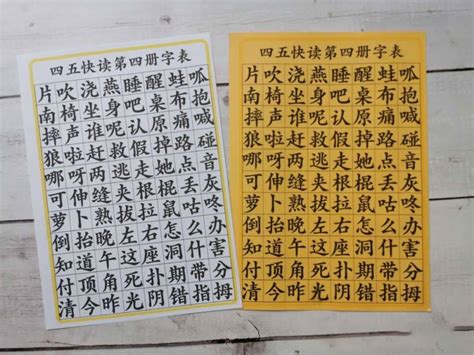 四五快读第四册字表
片吹浇燕睡醒蛙呱
南椅坐身吧桌布抱
摔声谁呢认原痛喊
狼啦赶救假掉路碰
哪呀两逃走她点音
可伸缝夹根棍丢灰
萝卜熟拔拉鼠咕咚
倒抬晚左右怎么办
知道午这座洞什害
付顶角死扑期带分
清今昨光阴错指拇
四五快读第四册字表
片吹浇燕睡醒蛙呱
南椅坐身吧桌布抱
摔声谁呢认原痛喊
狼啦赶救假掉路碰
哪呀两逃走她点音
可伸缝夹根棍丢灰
萝卜熟拔拉鼠咕咚
倒抬晚左右怎么办
知道午这座洞什害
付顶角死扑期带分
清今昨光阴错指拇